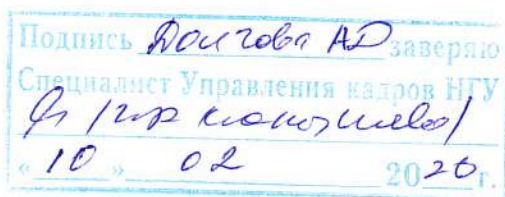 Подпись Долгова АД заверяю
Специалист Управления кадров НГУ
« 10 » 02 2020 г.